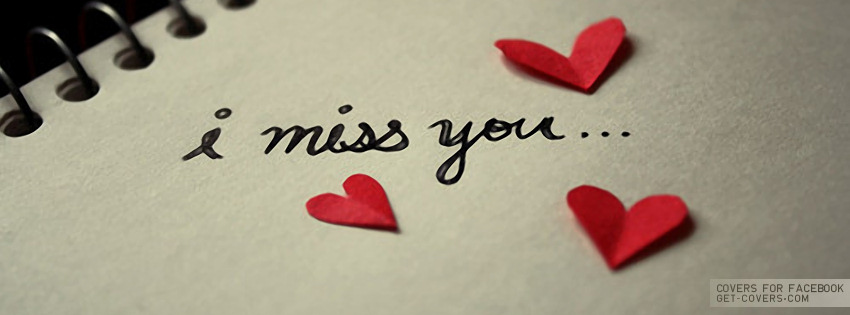 i miss you...
COVERS FOR FACEBOOK
GET-COVERS.COM